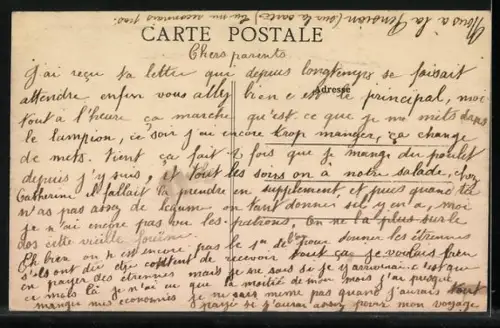 Nous a la Pension (sur la carte) tu me reconnais pas.
CARTE POSTALE
Chers parents
J'ai reçu ta lettre qui depuis longtemps se faisait
attendre enfin vous allez bien c est le principal, moi
Adresse
tout a l'heure ça marche qu'est ce que je me mets dans
le lampion, ce soir j'ai encore trop manger, ça change
de mets. Tient ça fait 2 fois que je mange du poulet
depuis j'y suis, et tout les soirs on a notre salade, chez
Catherine il fallait la prendre en supplement et puis quand tu
n'as pas assez de legume on t'ant donne s'il y en a, moi
je n'ai encore pas vu les patrons, On ne l'a plus sur le
dos cette vieille fouine.
Eh bien on n'est encore pas le 1er de l'an pour donner les étrennes
S'ils ont dû être content de recevoir tout ça je voulais bien
en payer des étrennes mais je ne sais se je y arriverai c'est que
ce mois là je n'ai eu que la moitié de mon mois j'ai presque
mangé mes economies je ne sais même pas quand j'aurais tout
payé si j'aurai assez pour mon voyage